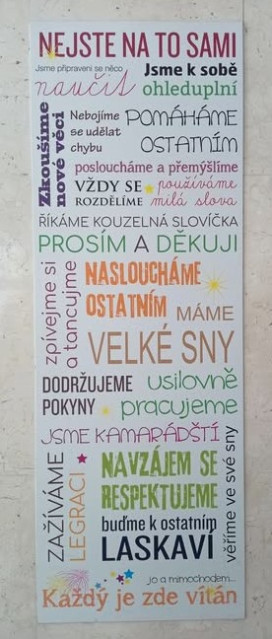 NEJSTE NA TO SAMI
Jsme připraveni se něco
naučit
Jsme k sobě
ohleduplní
Zkoušíme
nové věci
Nebojíme
se udělat
chybu
POMÁHÁME
OSTATNÍM
posloucháme a přemýšlíme
VŽDY SE
ROZDĚLÍME
používáme
milá slova
ŘÍKÁME KOUZELNÁ SLOVÍČKA
PROSÍM A DĚKUJI
zpívejme si
a tancujme
NASLOUCHÁME
OSTATNÍM
MÁME
VELKÉ SNY
DODRŽUJEME
POKYNY
usilovně
pracujeme
JSME KAMARÁDŠTÍ
ZAŽÍVÁME
LEGRACI
NAVZÁJEM SE
RESPEKTUJEME
buďme k ostatním
LASKAVÍ
věříme ve své sny
jo a mimochodem...
Každý je zde vítán